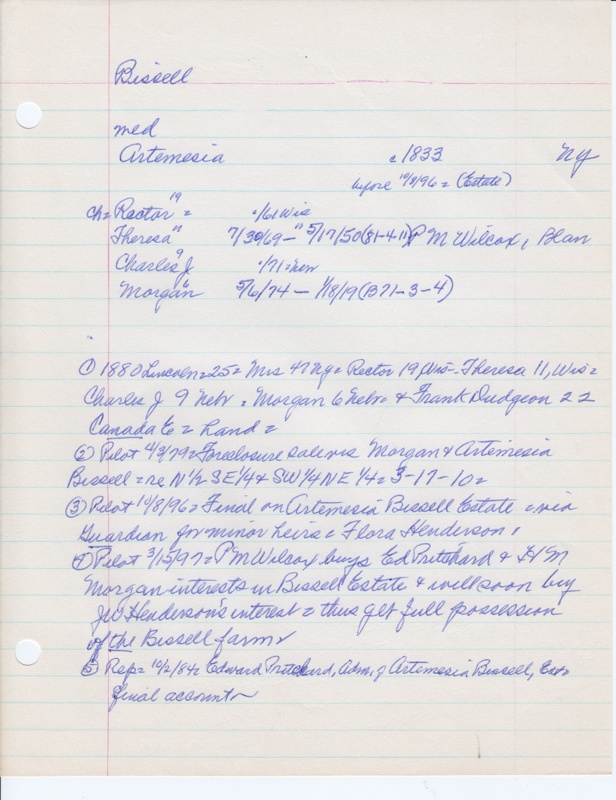 Bissell
med
Artemesia c 1833 NY
before 10/8/96 = (Estate)
ch = Rector 19 = c/61 Wis
Theresa 11 7/30/69 - 5/17/50 (B1-4-11) P M Wilcox, Blan
Charles J 9 c/71 = Neb
Morgan 6 5/6/74 - 1/18/19 (B71-3-4)
① 1880 Lincoln = 25 = Mrs 47 Ny = Rector 19, Wis - Theresa 11, Wis =
Charles J 9 Nebr = Morgan 6 Nebr & Frank Dudgeon 22
Canada E = hand =
② Pilot 4/3/79 = Foreclosure sale vs Morgan & Artemisia
Bissell = re N 1/2 SE 1/4 & SW 1/4 NE 1/4 = 3-17-10 =
③ Pilot 10/8/96 = Final on Artemesia Bissell Estate = via
Guardian for minor heirs = Flora Henderson,
④ Pilot 3/15/97 = P M Wilcox buys Ed Pritchard & H M
Morgan interests in Bissell Estate & will soon buy
JW Henderson's interest = thus get full possession
of the Bissell farm
⑤ Rep = 10/2/84 = Edward Pritchard, Adm. of Artemesia Bissell, Est =
final account